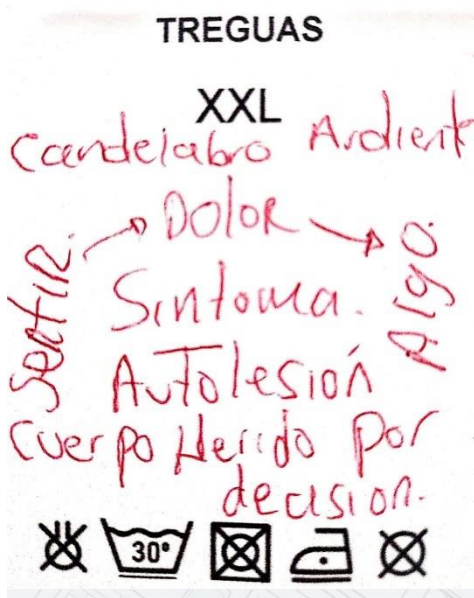 TREGUAS
XXL
Candelabro Ardiente
Sentir. → Dolor → Algo.
Sintoma.
Autolesión
Cuerpo Herido Por
decision.
30°